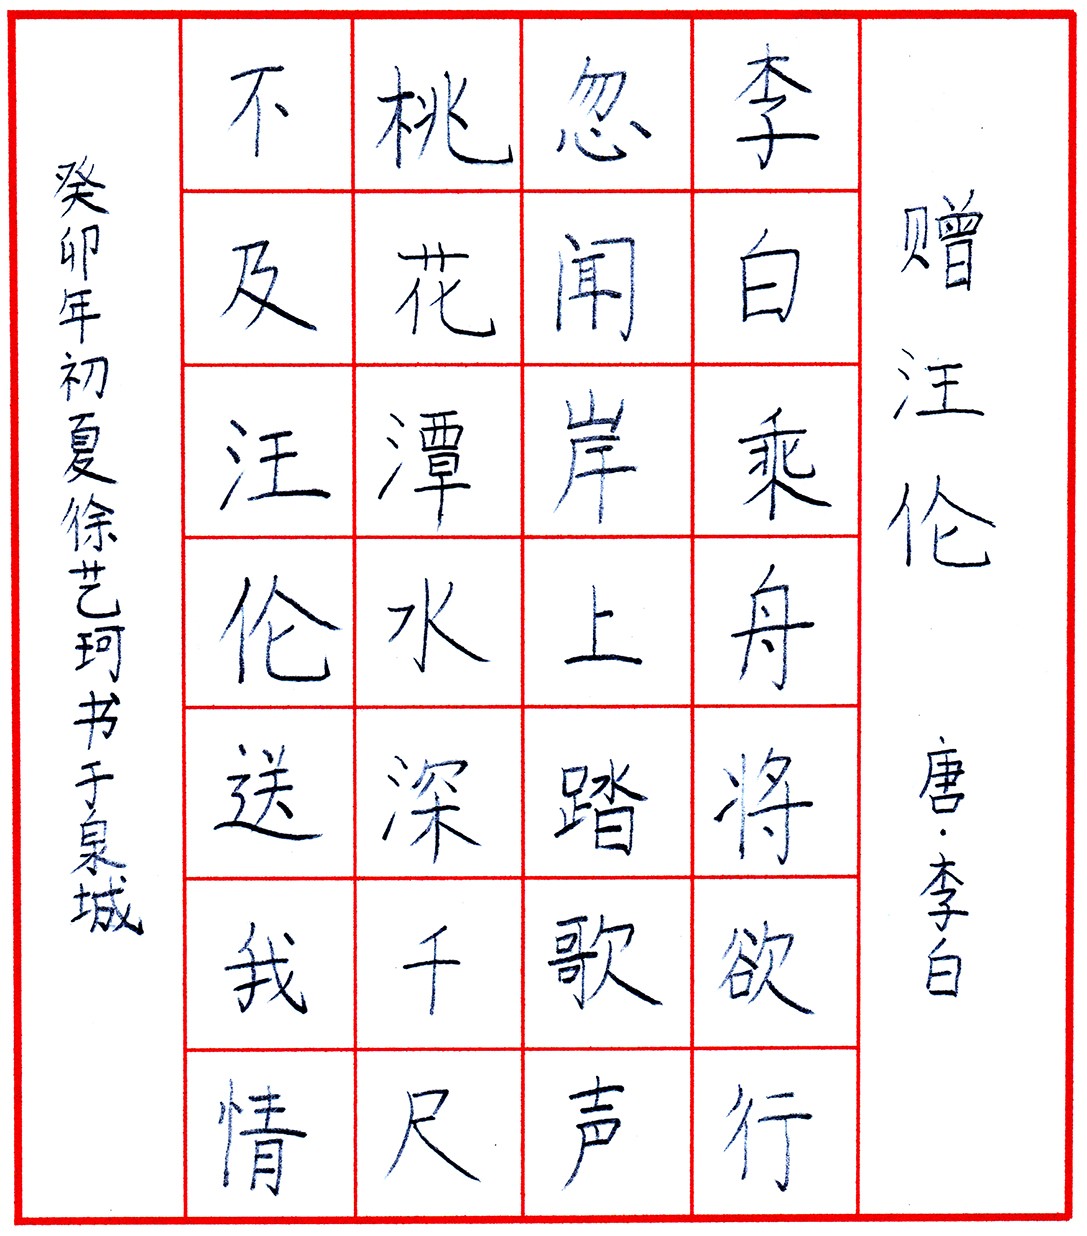 赠汪伦 唐·李白
李白乘舟将欲行
忽闻岸上踏歌声
桃花潭水深千尺
不及汪伦送我情
癸卯年初夏徐艺珂书于泉城